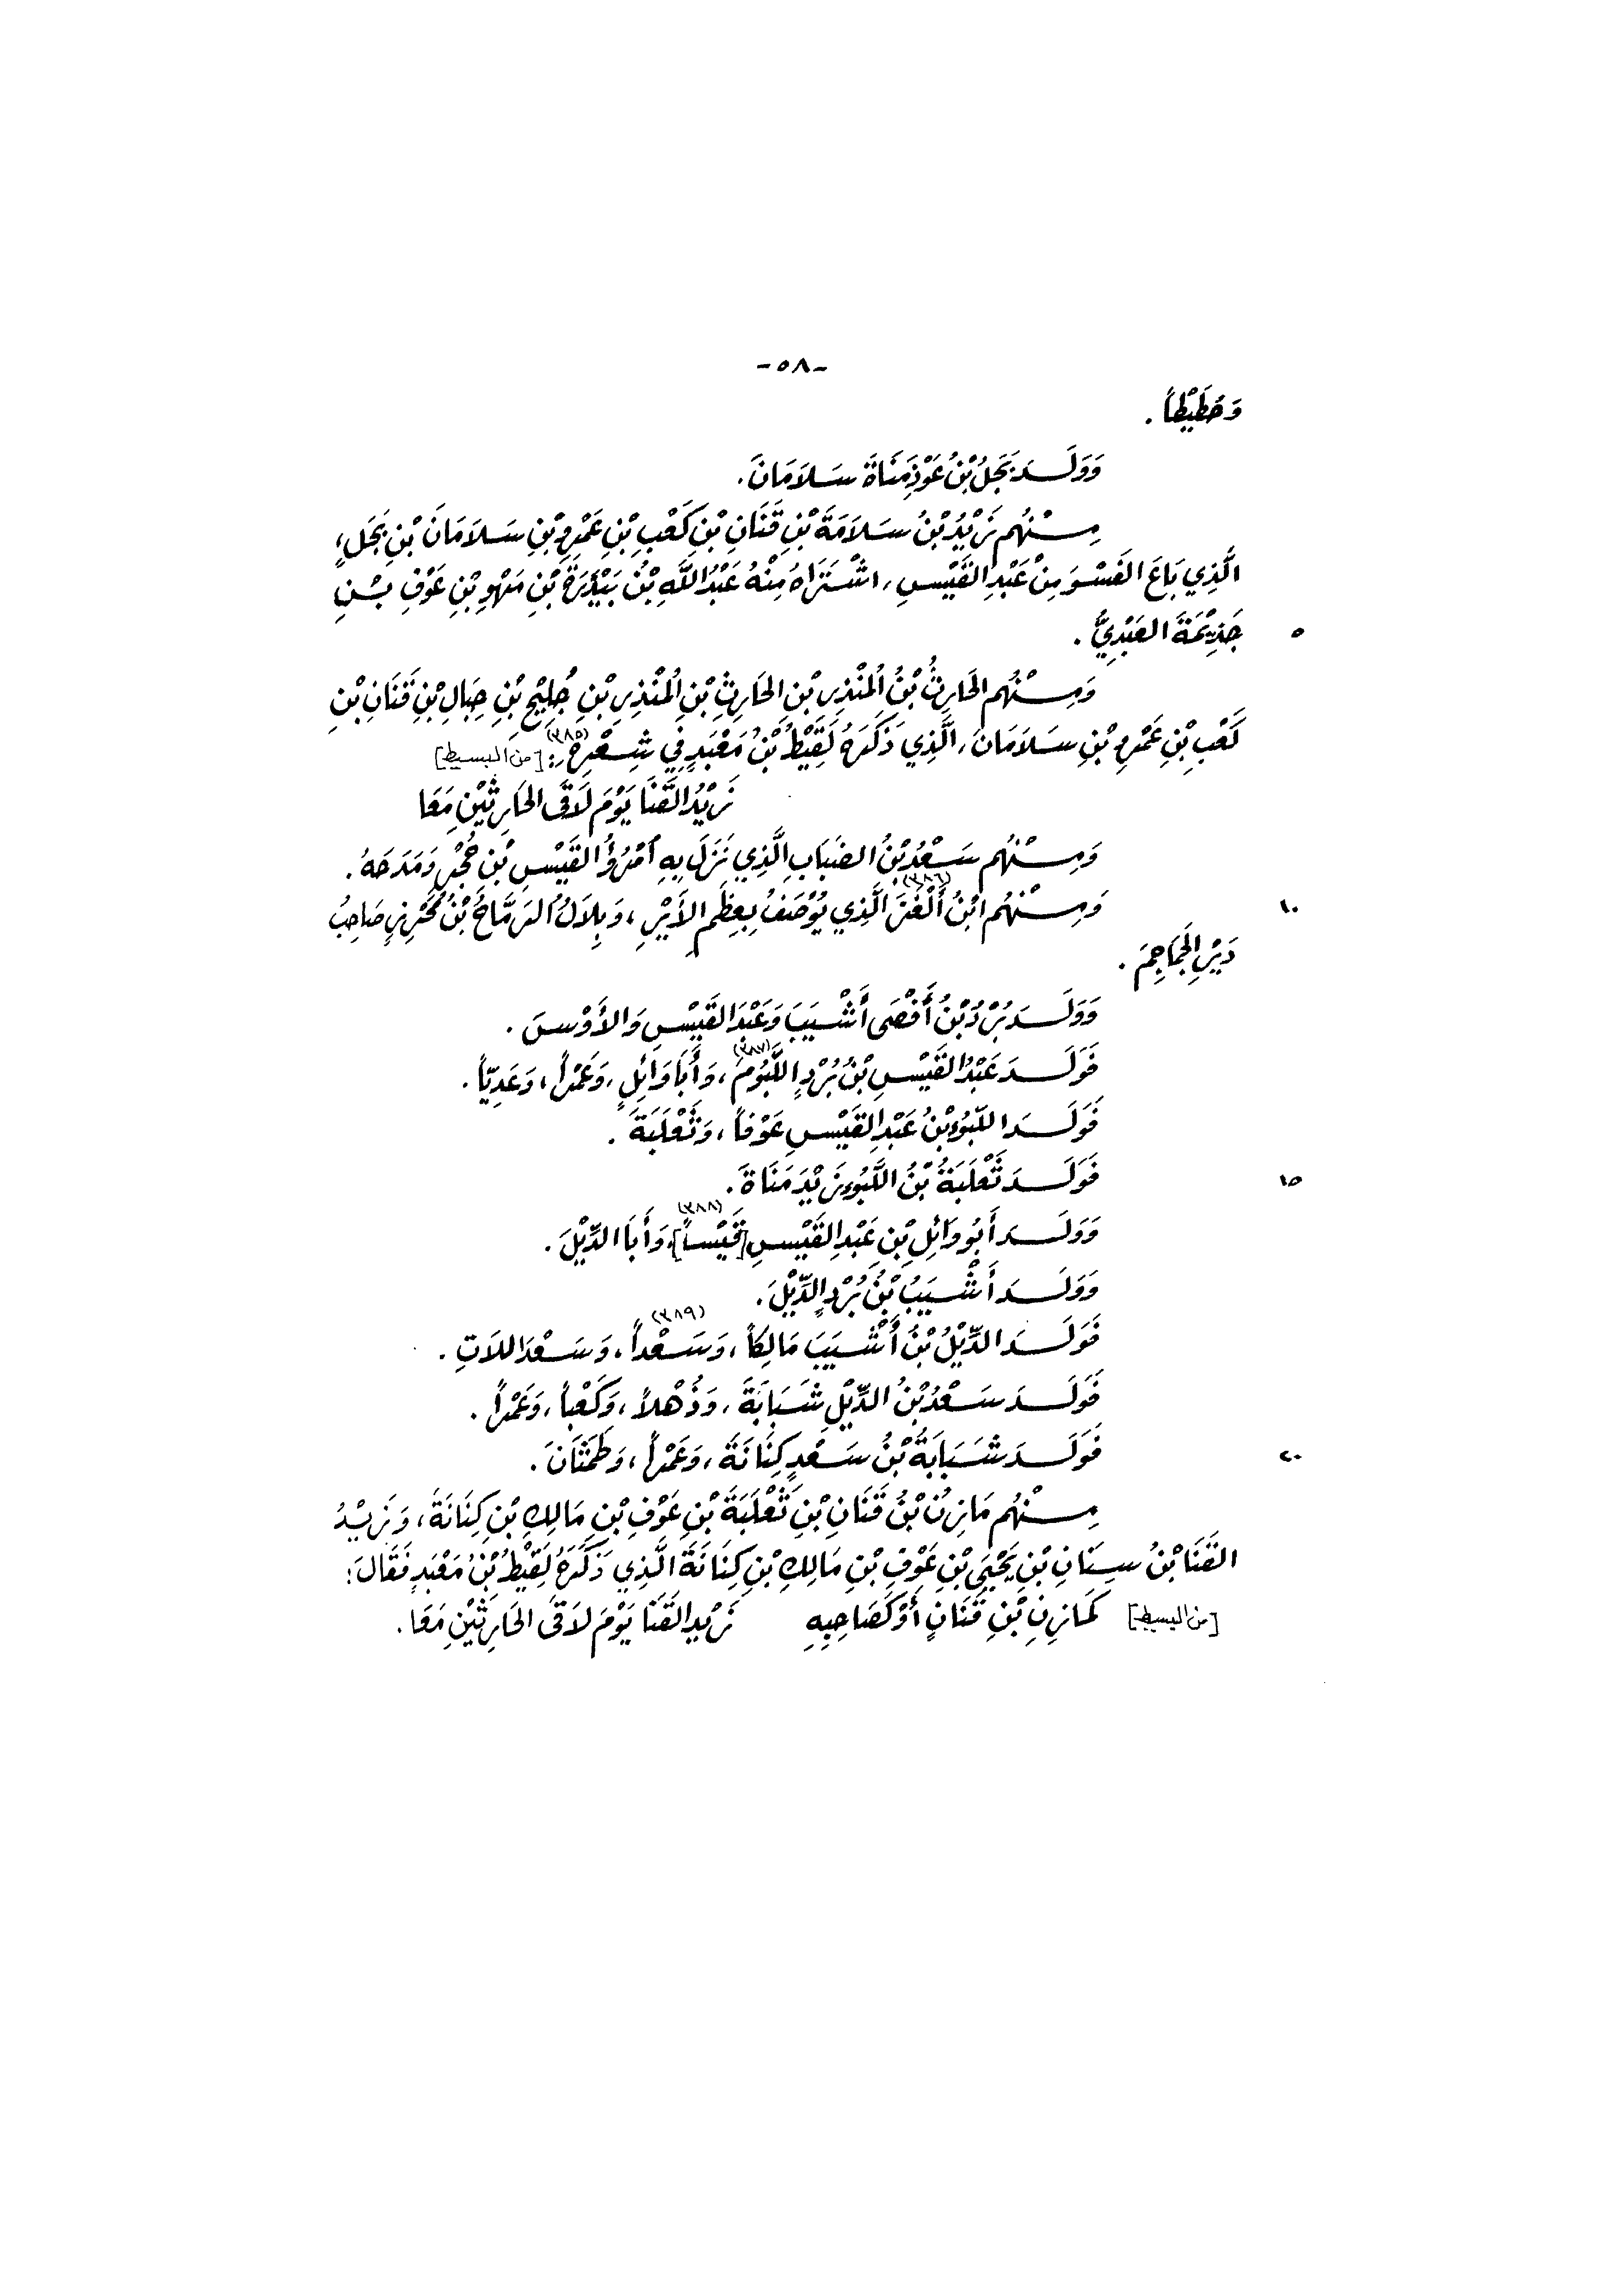 -٥٨-
وَحُطَيْطاً.
وَوَلَـدَ بَجَلُ بْنُ عَوْذِمَنَاةَ سَلاَمَانَ.
مِنْهُم زَيْدُ بْنُ سَلاَمَةَ بْنِ قَنَانِ بْنِ كَعْبِ بْنِ عَمْرِو بْنِ سَلاَمَانَ بْنِ بَجَلٍ،
الَّذِي بَاعَ الفَسْوَ مِنْ عَبْدِ القَيْسِ، اشْتَرَاهُ مِنْهُ عَبْدُ اللَّهِ بْنُ بَيْدَرَةَ بْنِ مَهْوِ بْنِ عَوْفِ بْنِ
جَذِيْمَةَ العَبْدِيُّ. ٥
وَمِنْهُم الحَارِثُ بْنُ المُنْذِرِ بْنِ الحَارِثِ بْنِ المُنْذِرِ بْنِ جُلِيْحِ بْنِ حِبَالِ بْنِ قَنَانِ بْنِ
كَعْبِ بْنِ عَمْرِو بْنِ سَلاَمَانَ، الَّذِي ذَكَرَهُ لَقِيْطُ بْنُ مَعْبَدٍ فِي شِعْرِهِ(٣٨٥): [من البسيط]
زَيْدُ القَنَا يَوْمَ لاَقَى الحَارِثَيْنِ مَعَا
وَمِنْهُم سَعْدُ بْنُ الضِبَابِ الَّذِي نَزَلَ بِهِ امْرُؤُ القَيْسِ بْنِ حُجْرٍ وَمَدَحَهُ.
وَمِنْهُم ابْنُ أَلْغَزَ(٣٨٦) الَّذِي يُوْصَفُ بِعِظَمِ الأَيْرِ، وَبِلاَلُ الرَمَّاحُ بْنُ مُحْرِزٍ صَاحِبُ ١٠
دَيْرِ الجَمَاجِمَ.
وَوَلَـدَ بُرْدُ بْنُ أَفْصَى أَشْيَبَ وَعَبْدَ القَيْسِ وَالأَوْسَ.
فَوَلَـدَ عَبْدُ القَيْسِ بْنُ بُرْدٍ اللَّبُومَ(٣٨٧)، وَأَبَا وَائِلٍ، وَعَمْراً، وَعَدِيّاً.
فَوَلَـدَ اللَّبُوءِ بْنُ عَبْدِ القَيْسِ عَوْفاً، وَثَعْلَبَةَ.
فَوَلَـدَ ثَعْلَبَةُ بْنُ اللَّبُوءِ زَيْدَ مَنَاةَ. ١٥
وَوَلَـدَ أَبُو وَائِلِ بْنِ عَبْدِ القَيْسِ [قَيْساً](٣٨٨)، وَأَبَا الدِّيْلَ.
وَوَلَـدَ أَشْيَبُ بْنُ بُرْدٍ الدِّيْلَ.
فَوَلَـدَ الدِّيْلُ بْنُ أَشْيَبَ مَالِكاً، وَسَعْداً(٣٨٩)، وَسَعْدَ اللاَتِ.
فَوَلَـدَ سَعْدُ بْنُ الدِّيْلِ شَبَابَةَ، وَذُهْلاً، وَكَعْباً، وَعَمْراً.
فَوَلَـدَ شَبَابَةُ بْنُ سَعْدٍ كِنَانَةَ، وَعَمْراً، وَطَمَثَانَ. ٢٠
مِنْهُم مَازِنُ بْنُ قَنَانِ بْنِ ثَعْلَبَةَ بْنِ عَوْفِ بْنِ مَالِكِ بْنِ كِنَانَةَ، وَزَيْدُ
القَنَا بْنُ سِنَانِ بْنِ يَحْيَى بْنِ عَوْفِ بْنِ مَالِكِ بْنِ كِنَانَةَ الَّذِي ذَكَرَهُ لَقِيْطُ بْنُ مَعْبَدٍ فَقَالَ:
[من البسيط] كَمَازِنِ بْنِ قَنَانٍ أَوْ كَصَاحِبِهِ زَيْدِ القَنَا يَوْمَ لاَقَى الحَارِثَيْنِ مَعَا.